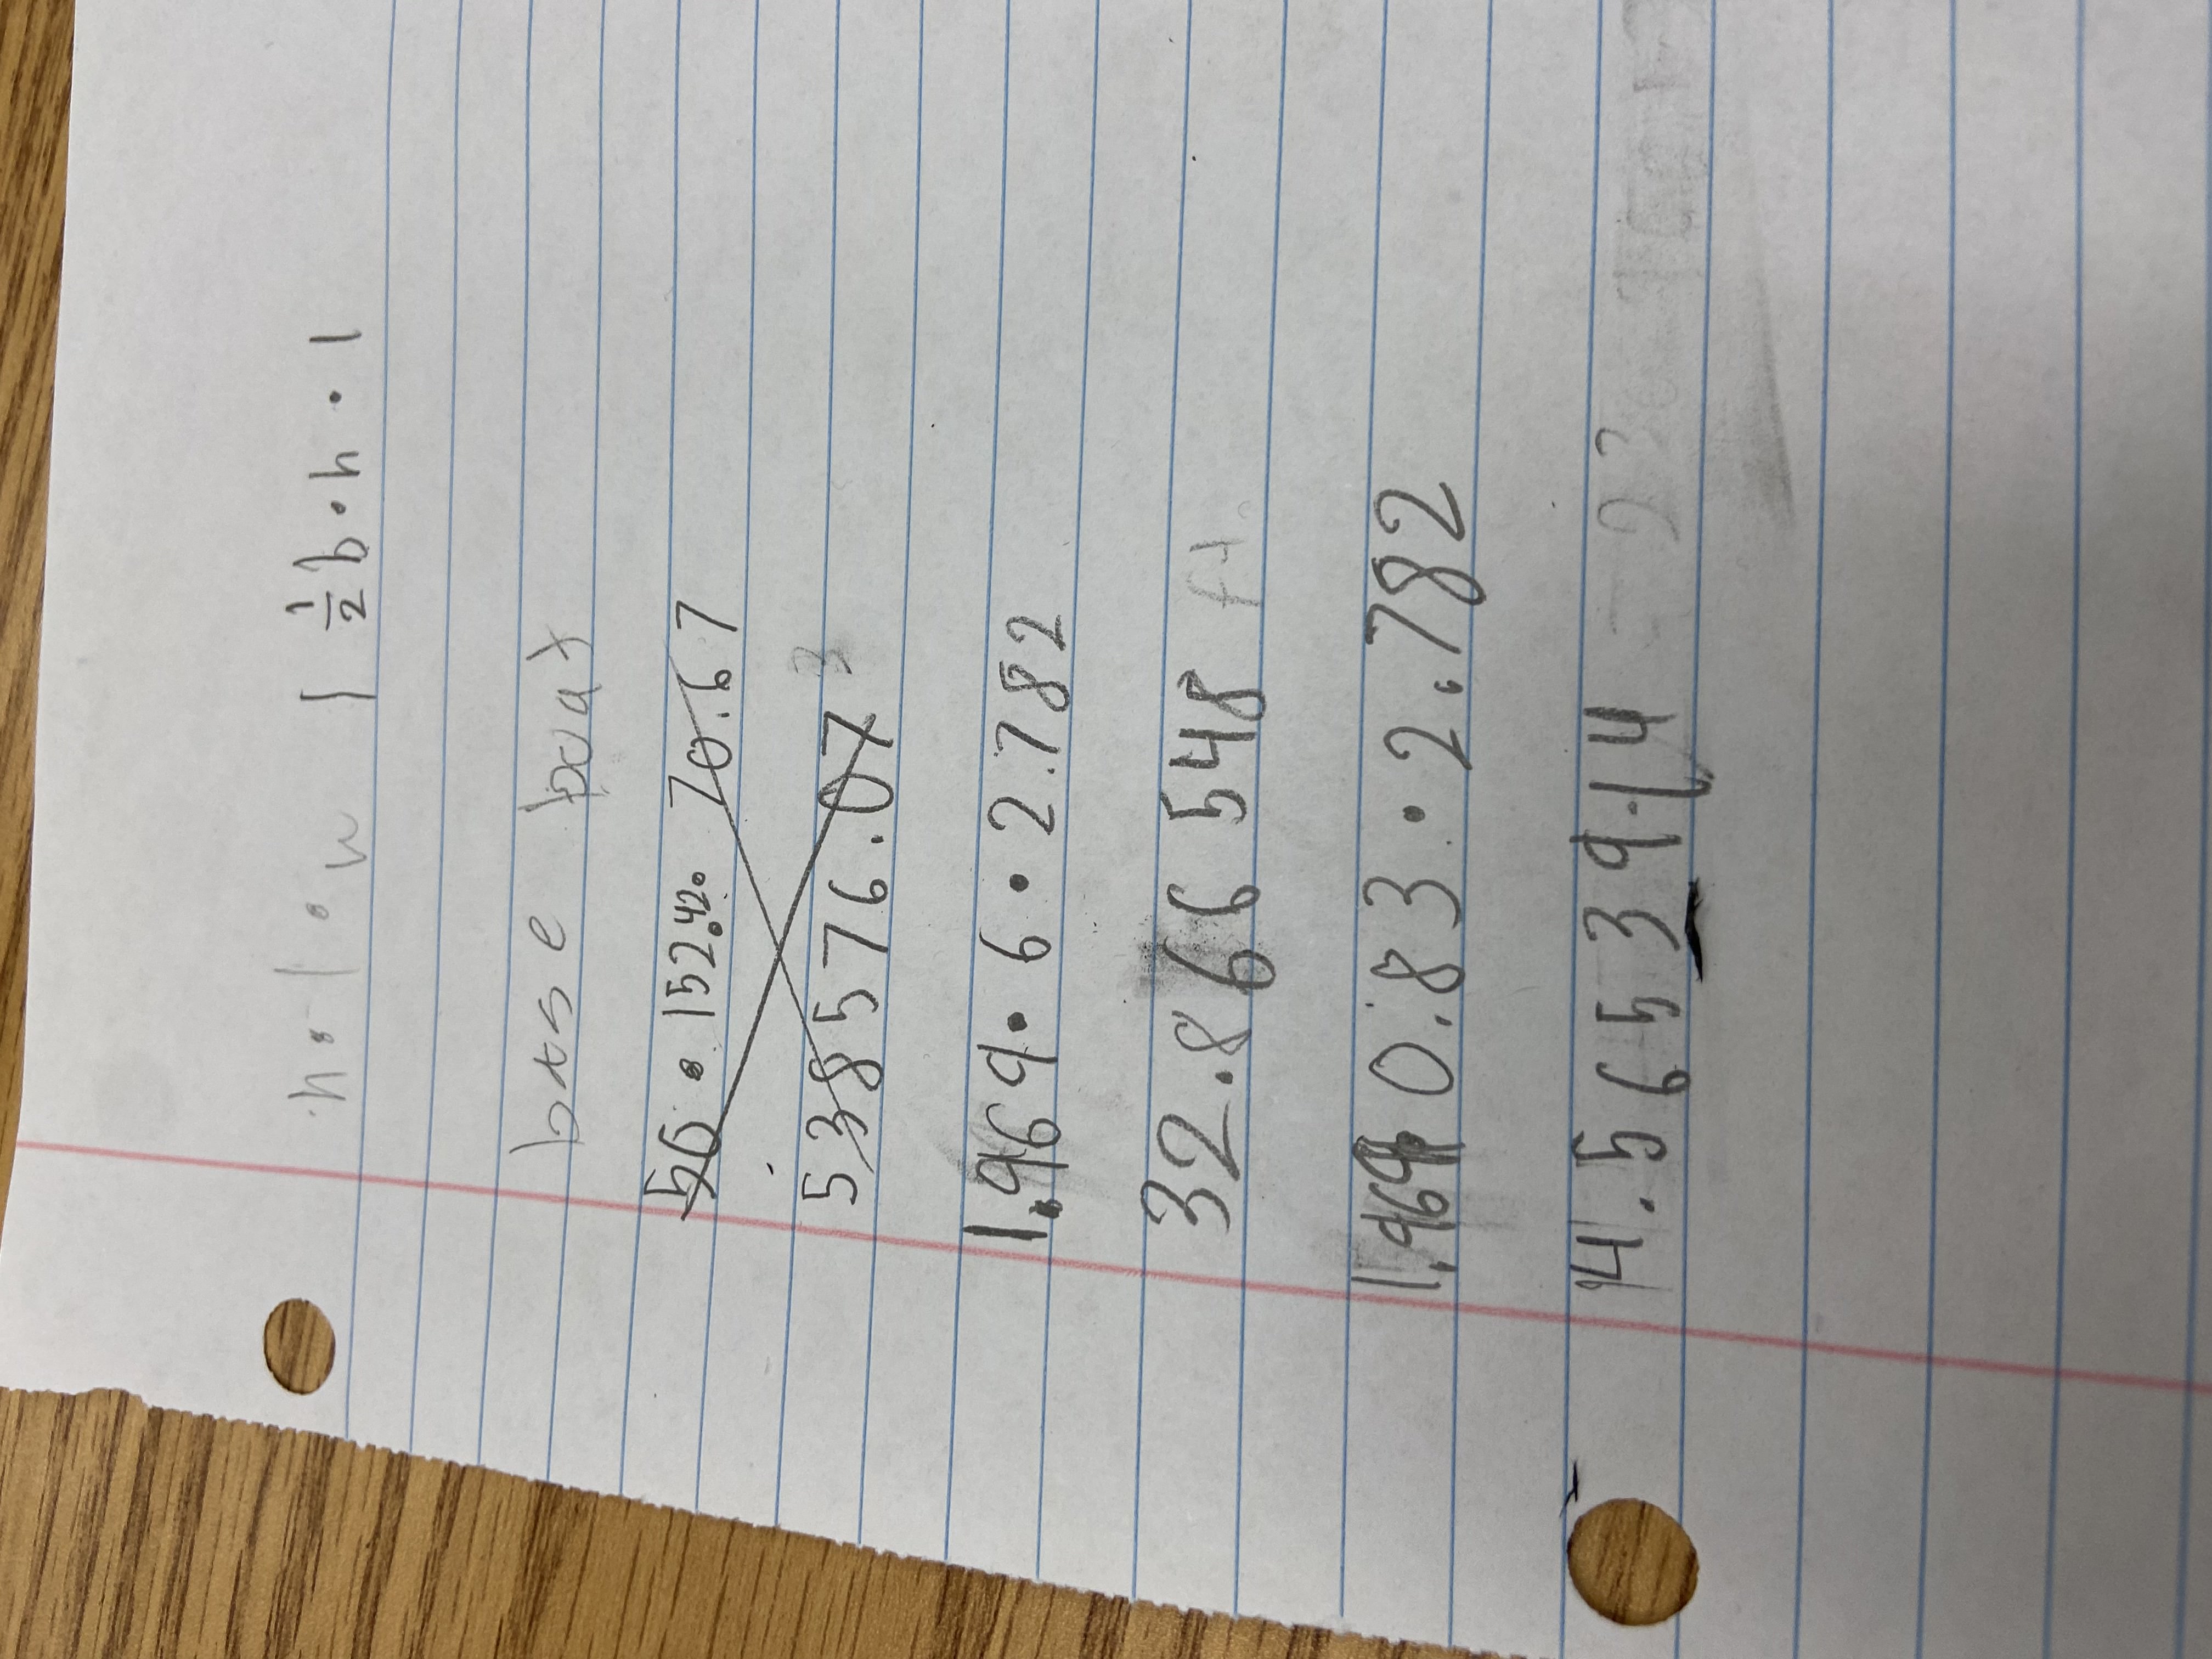 h • l • w | ½ b • h • l
base boat
50 • 152.42 • 70.67
538576.07 3
1.969 • 6 • 2.782
32.866548 ft.
1.969 • 0.83 • 2.782
4.5653914